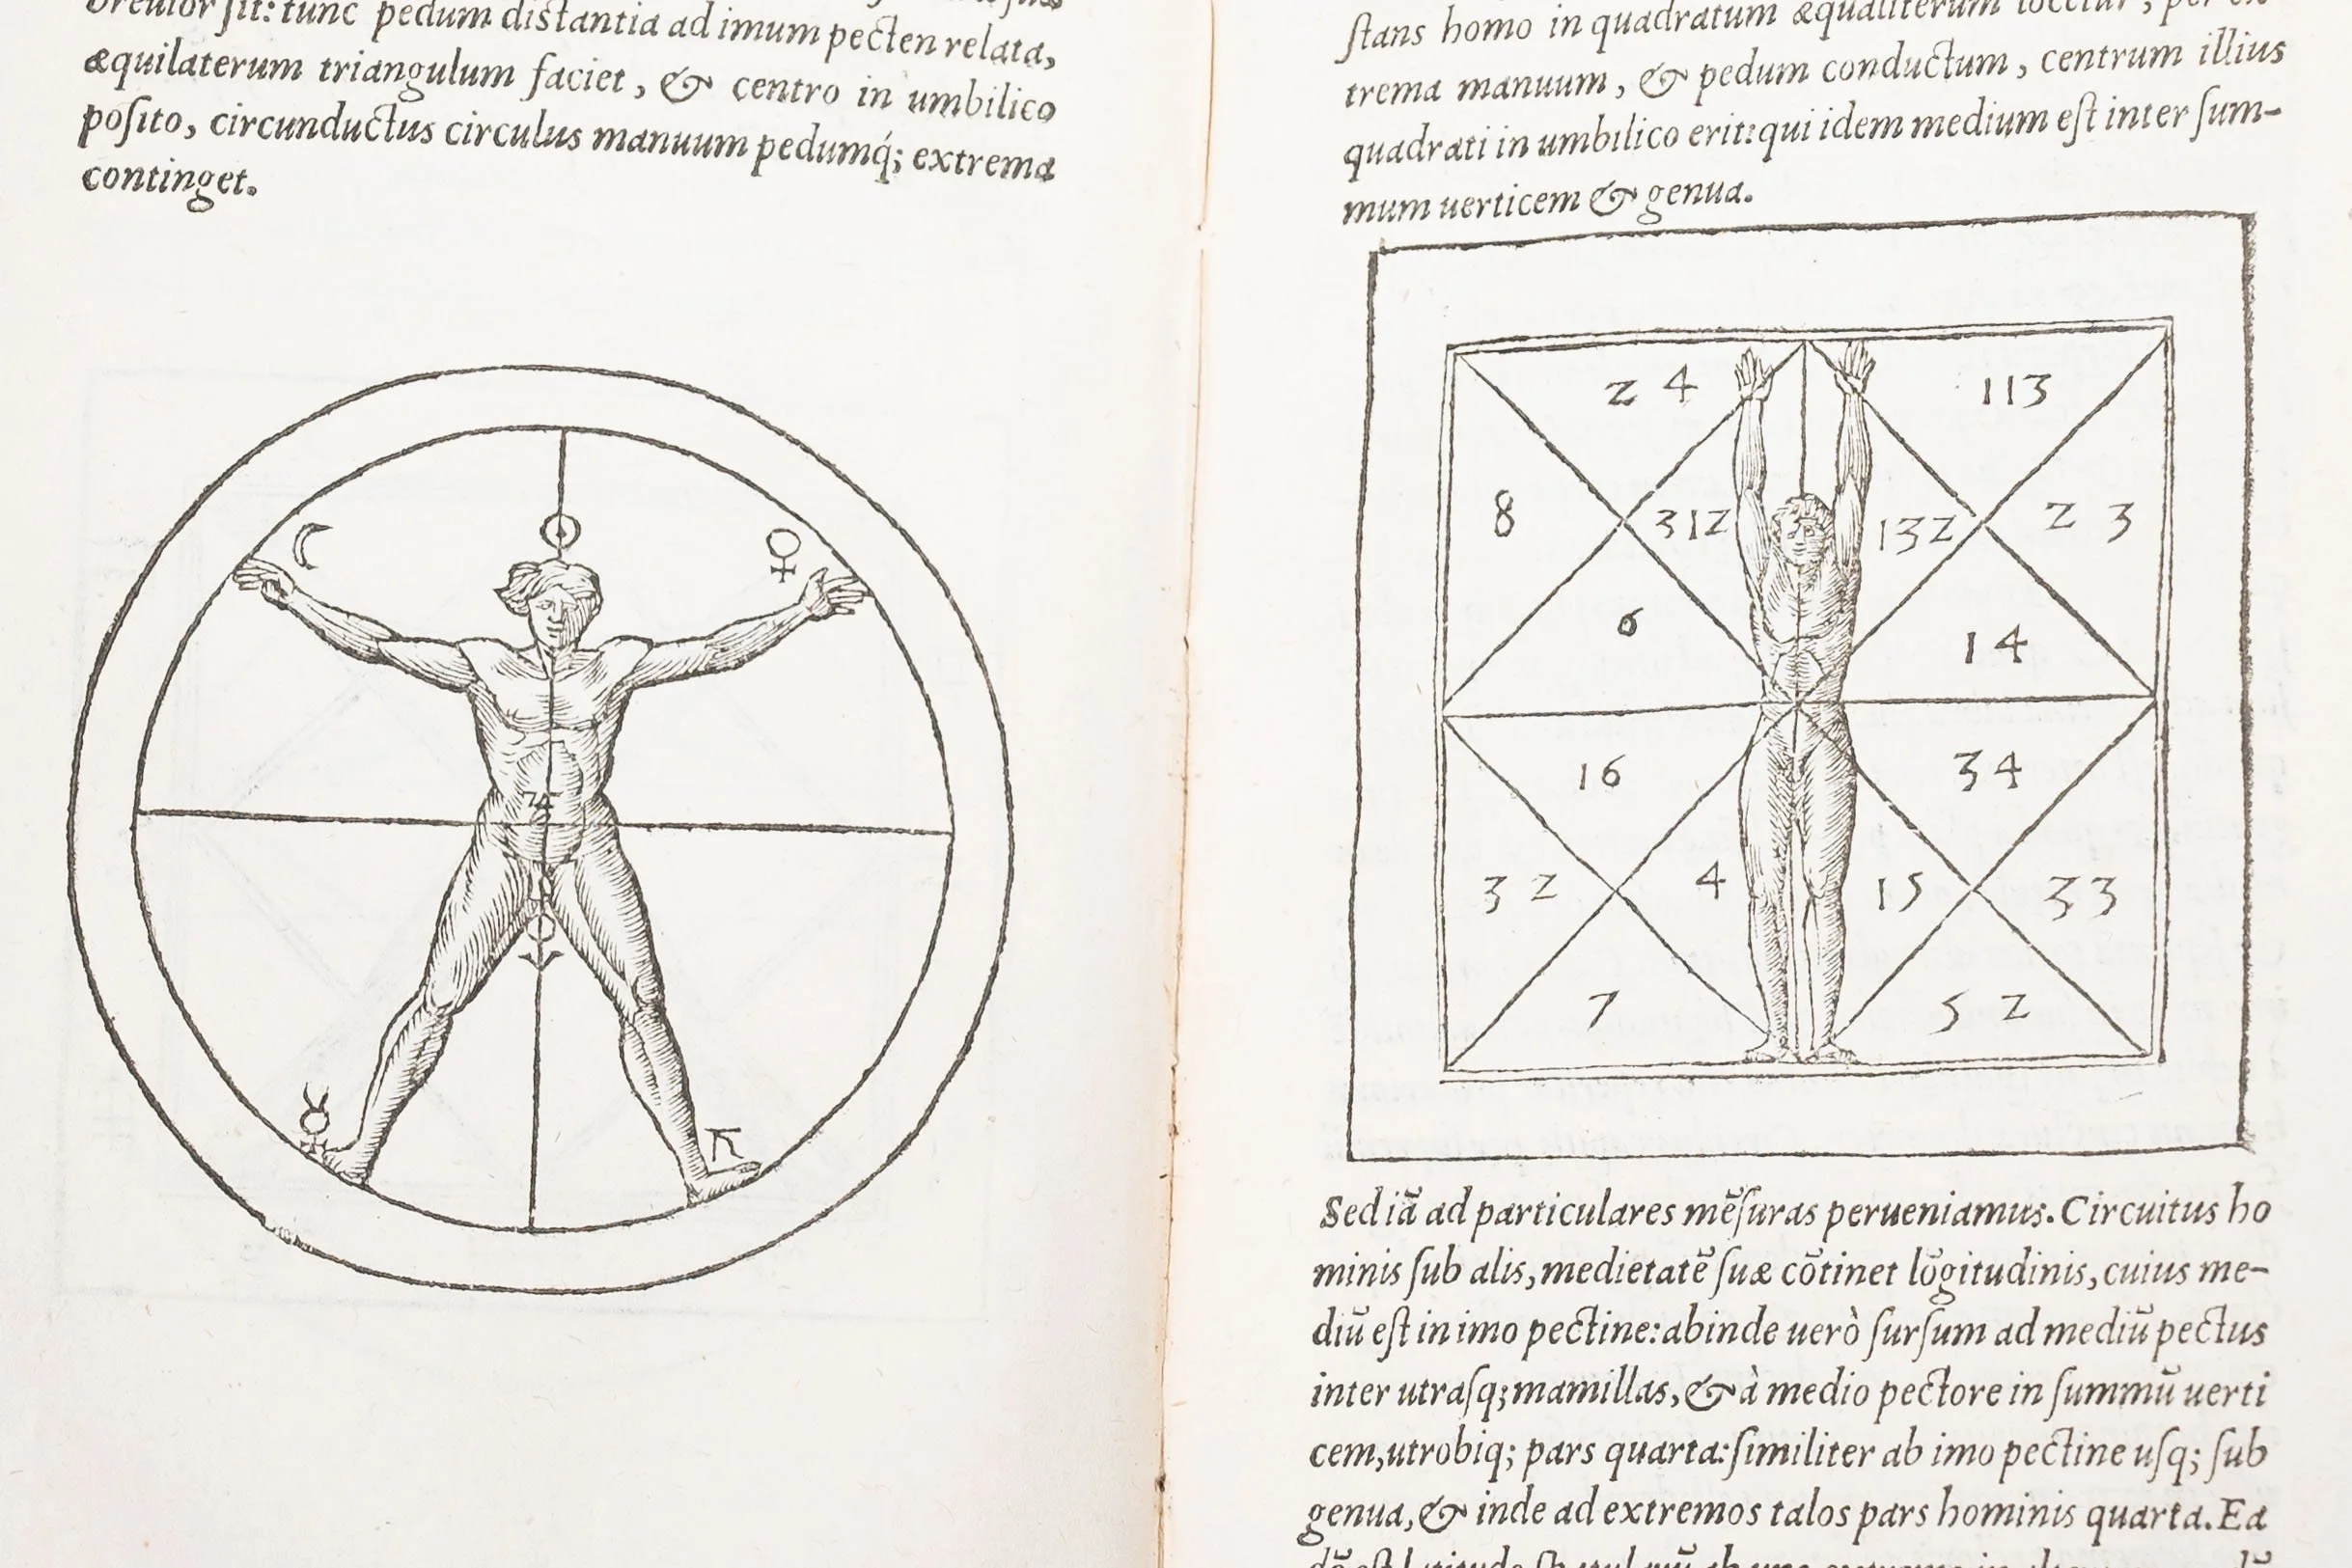 breuior ſit: tunc pedum distantia ad imum pecten relata,
æquilaterum triangulum faciet, & centro in umbilico
poſito, circunductus circulus manuum pedumq́; extrema
continget.
☾ ☉ ♀
♃
♂
☿ ♄
ſtans homo in quadratum æqualiterum locetur, per ex-
trema manuum, & pedum conductum, centrum illius
quadrati in umbilico erit: qui idem medium eſt inter ſum-
mum uerticem & genua.
24 113
8 312 132 23
6 14
16 34
32 4 15 33
7 52
Sed iã ad particulares mẽſuras perueniamus. Circuitus ho
minis ſub alis, medietatẽ ſuæ cõtinet lõgitudinis, cuius me-
diũ eſt in imo pectine: abinde uerò ſurſum ad mediũ pectus
inter utraſq; mamillas, & à medio pectore in ſummũ uerti
cem, utrobiq; pars quarta: ſimiliter ab imo pectine uſq; ſub
genua, & inde ad extremos talos pars hominis quarta. Ea